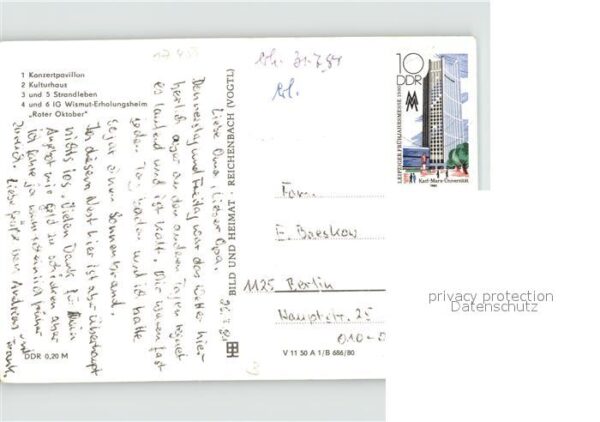 1 Konzertpavillon
2 Kulturhaus
3 und 5 Strandleben
4 und 6 IG Wismut-Erholungsheim
„Roter Oktober"
DDR 0,20 M
BILD UND HEIMAT · REICHENBACH (VOGTL)
V 11 50 A 1/B 686/80
31.7.81
10
DDR
LEIPZIGER FRÜHJAHRSMESSE 1980
Karl-Marx-Universität
Liebe Oma, lieber Opa.
Donnerstag und Freitag war das Wetter hier
herrlich aber an den anderen Tagen regnet
es laufend und ist kalt. Wir waren fast
jeden Tag baden und ich hatte
sogar einen Sonnenbrand.
In diesem Nest hier ist aber überhaupt
nichts los. Vielen Dank für Dein
Angebot mir Geld zu schicken aber
ich fahre ja
zurück. Liebe Grüße von Andreas und
Frank.
Fam.
E. Baeskow
1125 Berlin
Hauptstr. 25
privacy protection
Datenschutz